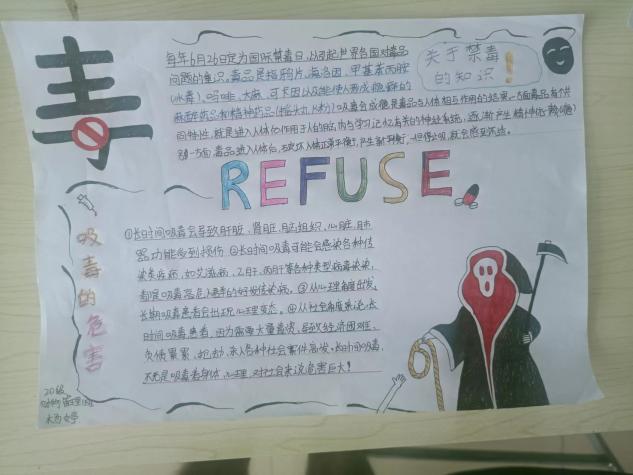 毒
每年6月26日定为国际禁毒日,以引起世界各国对毒品
问题的重视。毒品是指鸦片,海洛因,甲基苯丙胺
(冰毒),吗啡,大麻,可卡因以及能使人形成瘾癖的
麻醉药品和精神药品(摇头丸,K粉)吸毒合成瘾是毒品与人体相互作用的结果。一方面毒品有个共
同特性,就是进入人体后作用于人的
另一方面,毒品进入人体后,
关于禁毒
的知识!
REFUSE
吸毒的危害
①长时间吸毒会导致肝脏,肾脏,脑组织,心脏,肺
器功能受到损伤 ②长时间吸毒可能会感染各种传
染类疾病,如艾滋病,乙肝,丙肝等各种类型病毒
都是吸毒高危人群的好发传染病。③从心理角度出发,
长期吸毒患者会出现心理变态。④从社会角度来说,长
时间吸毒患者,因为需要大量毒资,导致经济困难,
负债累累,抢劫,杀人各种社会案件高发。长时间吸毒,
不光是吸毒者身体,心理,对社会来说危害巨大!
20级